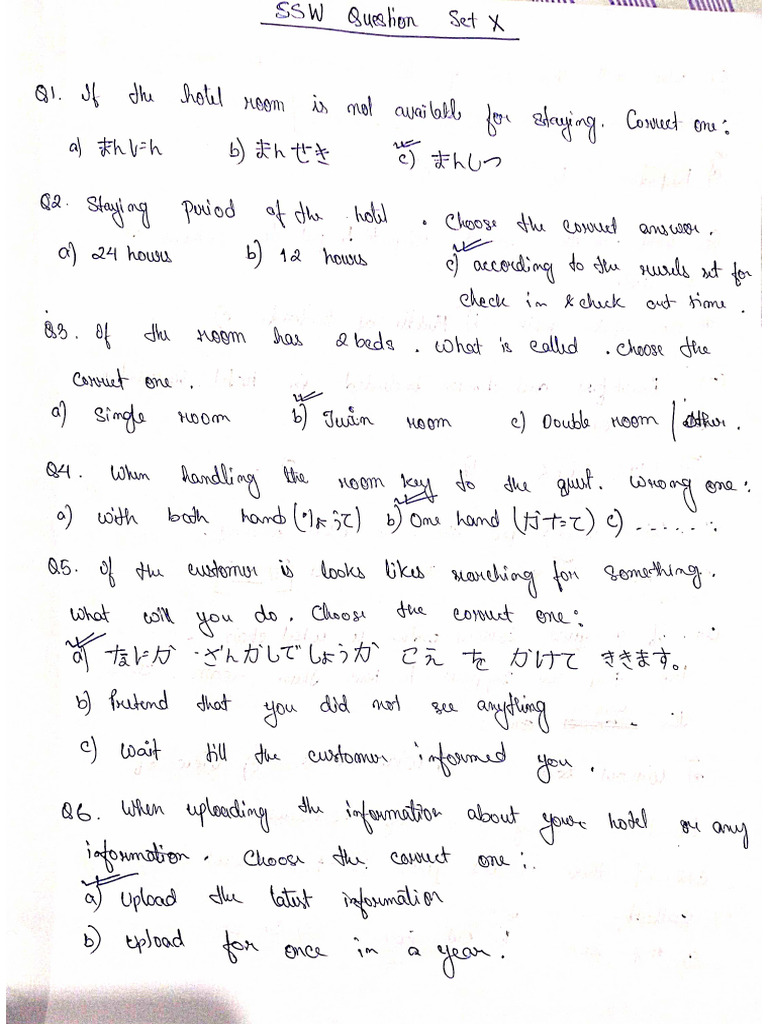 SSW Question Set X
Q1. If the hotel room is not available for staying. Correct one:
a) まんしん b) まんせき c) まんしつ
Q2. Staying period of the hotel . Choose the correct answer.
a) 24 hours b) 12 hours c) according to the set for
check in & check out time.
Q3. If the room has 2 beds . What is called . Choose the
correct one.
a) Single room b) Twin room c) Double room / other.
Q4. When handling the room key to the guest. Wrong one:
a) with both hand (りょうて) b) One hand (かたて) c) .......
Q5. If the customer is looks likes searching for something.
What will you do. Choose the correct one:
a) なにか こえ を かけて ききます。
b) Pretend that you did not see anything
c) wait till the customer informed you.
Q6. When uploading the information about your hotel or any
information. Choose the correct one:
a) Upload the latest information
b) Upload for once in a year.